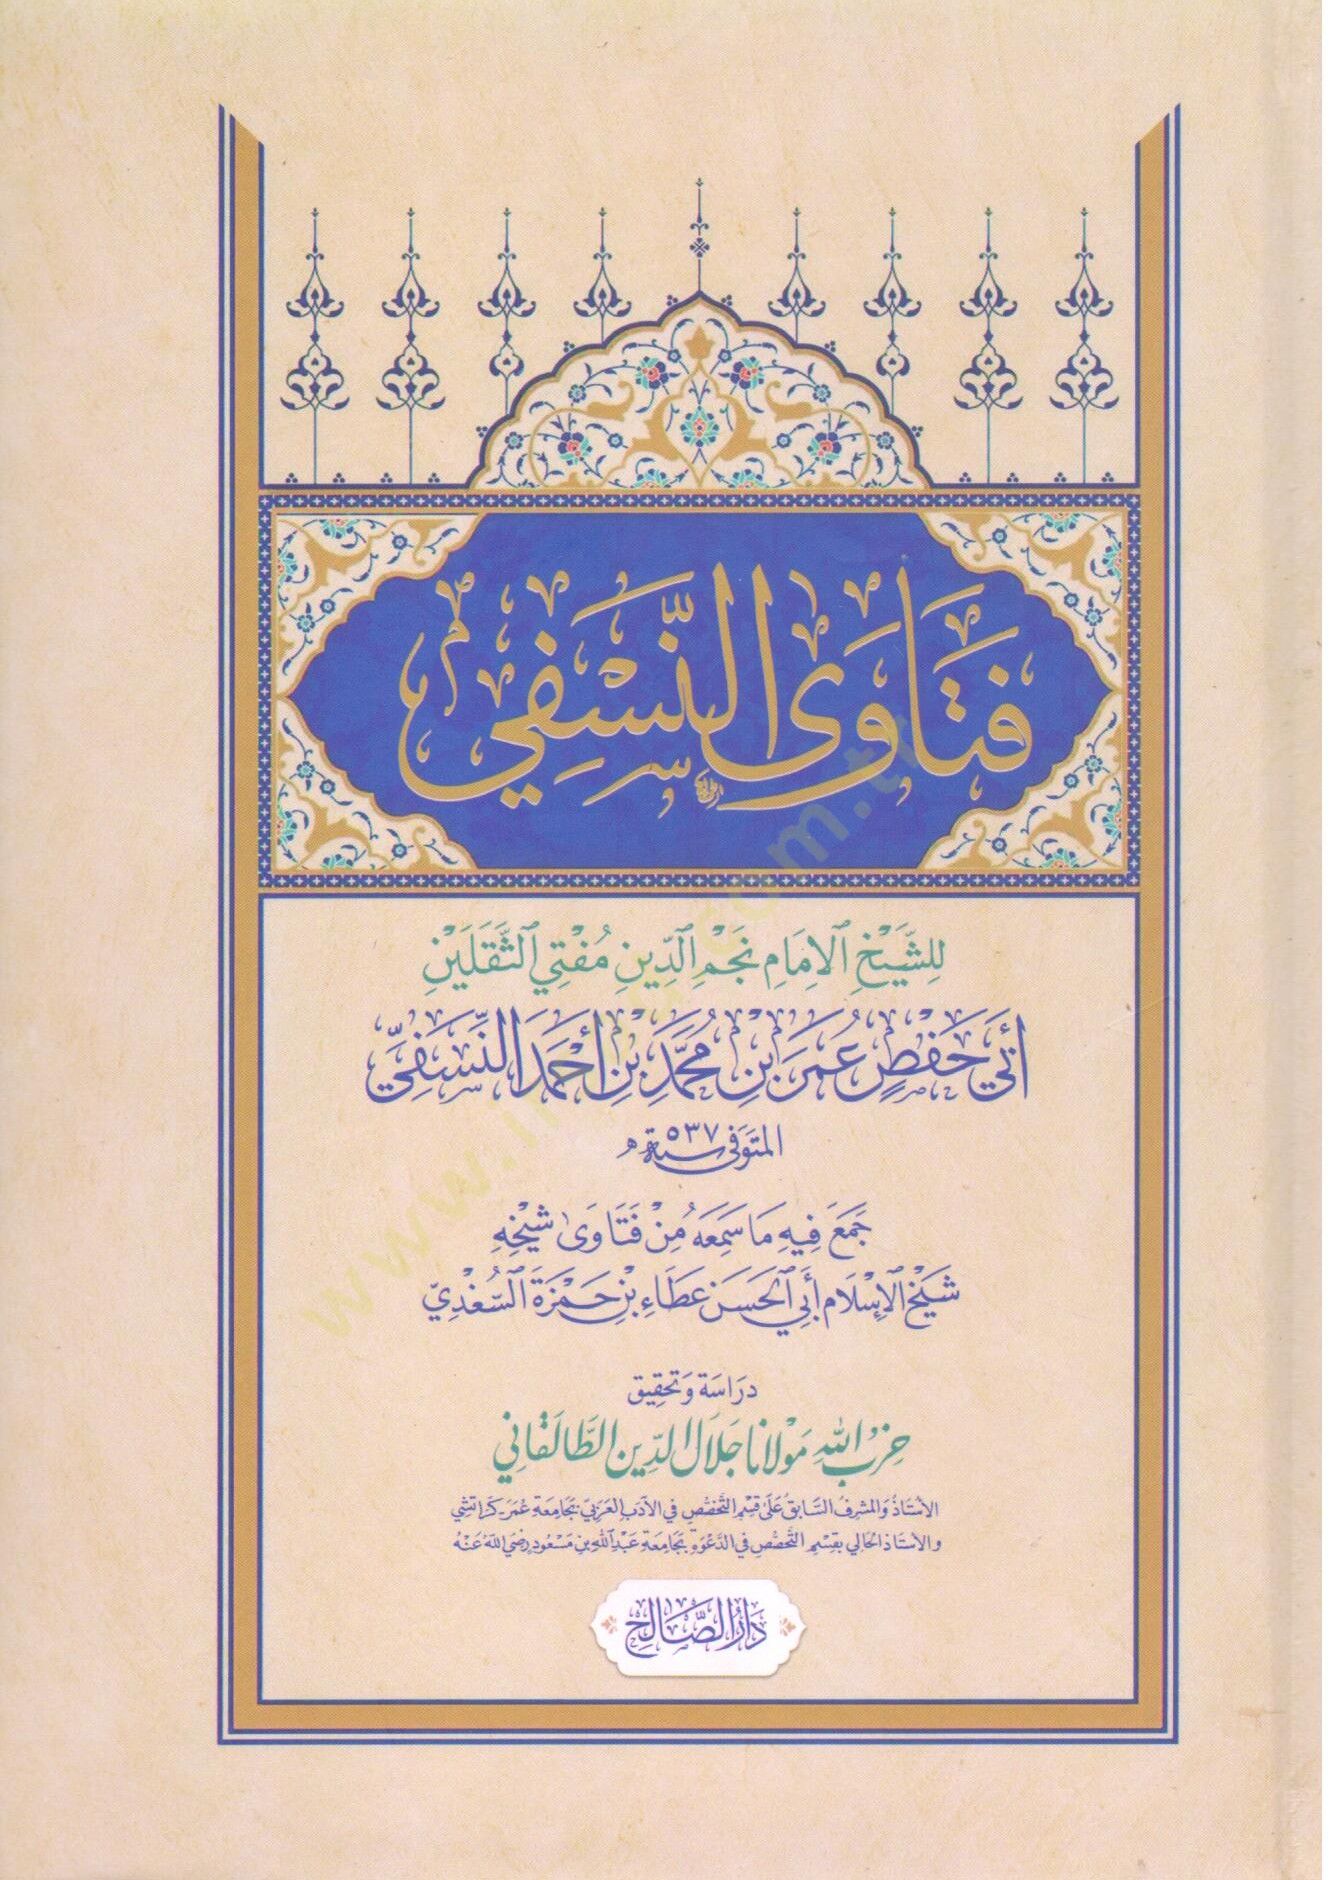 فَتَاوَى النَّسَفِي
لِلشَّيْخِ الْإِمَامِ نَجْمِ الدِّينِ مُفْتِي الثَّقَلَيْنِ
أَبِي حَفْصٍ عُمَرَ بْنِ مُحَمَّدِ بْنِ أَحْمَدَ النَّسَفِيِّ
المتوفى سنة ٥٣٧ هـ
جَمَعَ فِيهِ مَا سَمِعَهُ مِنْ فَتَاوَى شَيْخِهِ
شَيْخِ الْإِسْلَامِ أَبِي الْحَسَنِ عَطَاءِ بْنِ حَمْزَةَ السُّغْدِيِّ
دراسة وتحقيق
حزب الله مولانا جلال الدين الطالقاني
الأستاذ والمشرف السابق على قسم التخصص في الأدب العربي بجامعة عمر - كراتشي
والأستاذ الحالي بقسم التخصص في الدعوة بجامعة عبد الله بن مسعود رضي الله عنه
دار الصالح